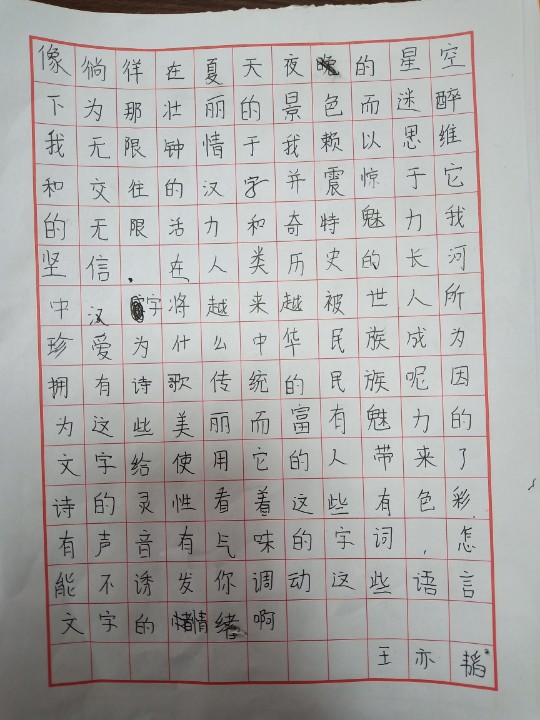 像徜徉在夏天夜晚的星空
下为那壮丽的景色而迷醉
我无限钟情于我赖以思维
和交往的汉字并震惊于它
的无限活力和奇特魅力我
坚信.在人类历史的长河
中汉字将越来越被世人所
珍爱为什么中华民族成为
拥有诗歌传统的民族呢因
为这些美丽而富有魅力的
文字给使用它的人带来了
诗的灵性看着这些有色彩
有声音有气味的字词,怎
能不诱发你调动这些语言
文字的情绪啊
王亦韬